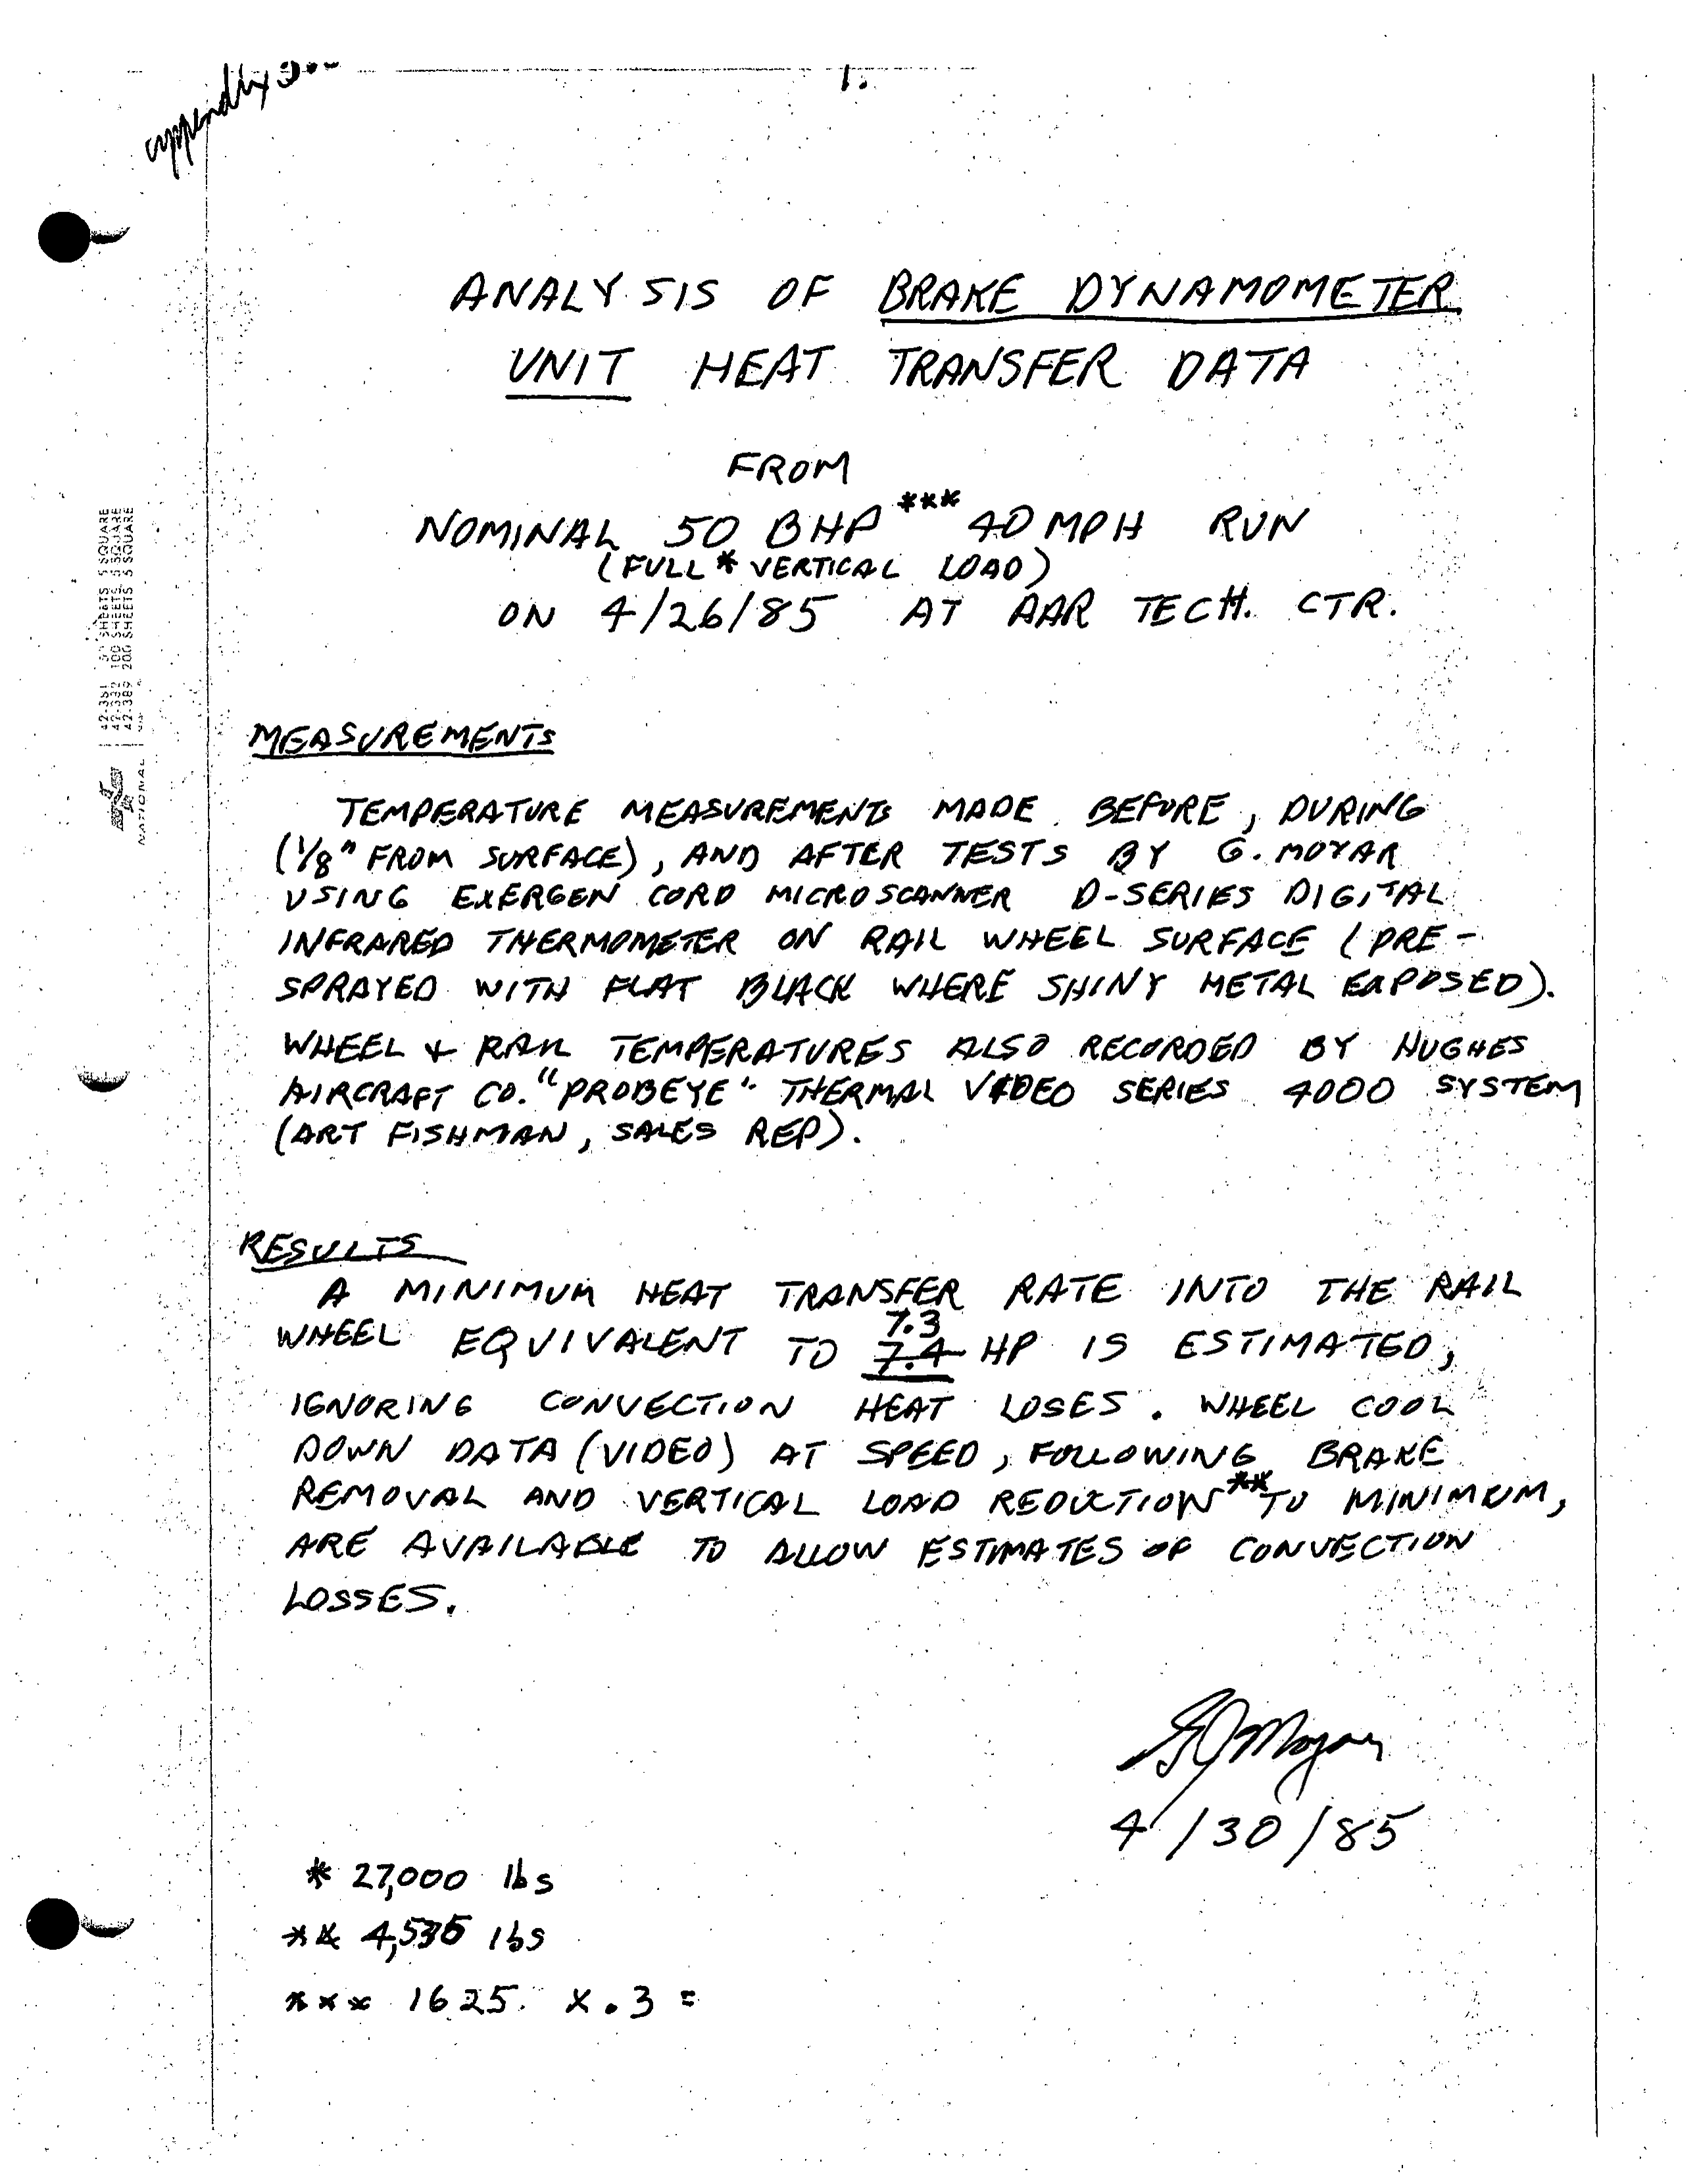 appendix
1.
ANALYSIS OF BRAKE DYNAMOMETER
UNIT HEAT TRANSFER DATA
FROM
NOMINAL 50 BHP *** 40 MPH RUN
(FULL * VERTICAL LOAD)
ON 4/26/85 AT AAR TECH. CTR.
42-381 50 SHEETS 5 SQUARE
42-382 100 SHEETS 5 SQUARE
42-389 200 SHEETS 5 SQUARE
NATIONAL
MEASUREMENTS
TEMPERATURE MEASUREMENTS MADE BEFORE, DURING
(1/8" FROM SURFACE), AND AFTER TESTS BY G. MOYAR
USING EXERGEN CORP MICROSCANNER D-SERIES DIGITAL
INFRARED THERMOMETER ON RAIL WHEEL SURFACE (PRE-
SPRAYED WITH FLAT BLACK WHERE SHINY METAL EXPOSED).
WHEEL & RAIL TEMPERATURES ALSO RECORDED BY HUGHES
AIRCRAFT CO. "PROBEYE" THERMAL VIDEO SERIES 4000 SYSTEM
(ART FISHMAN, SALES REP).
RESULTS
A MINIMUM HEAT TRANSFER RATE INTO THE RAIL
7.3
WHEEL EQUIVALENT TO 7.4 HP IS ESTIMATED,
IGNORING CONVECTION HEAT LOSES. WHEEL COOL
DOWN DATA (VIDEO) AT SPEED, FOLLOWING BRAKE
REMOVAL AND VERTICAL LOAD REDUCTION ** TO MINIMUM,
ARE AVAILABLE TO ALLOW ESTIMATES OF CONVECTION
LOSSES.
GJMoyar
4/30/85
* 27,000 lbs
** 4,535 lbs
*** 1625. x .3 =